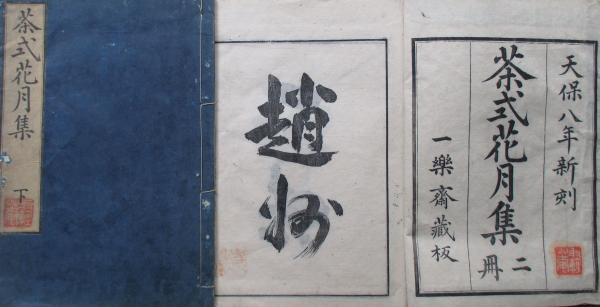 茶式花月集
下
趙州
天保八年新刻
茶式花月集 二冊
一樂齋藏板